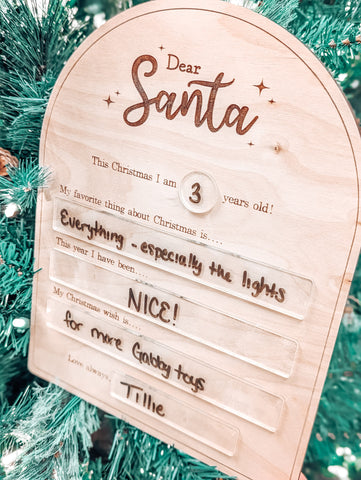 Dear
Santa
This Christmas I am 3 years old!
My favorite thing about Christmas is....
Everything - especially the lights
This year I have been....
NICE!
My Christmas wish is....
for more Gabby toys
Love always,
Tillie